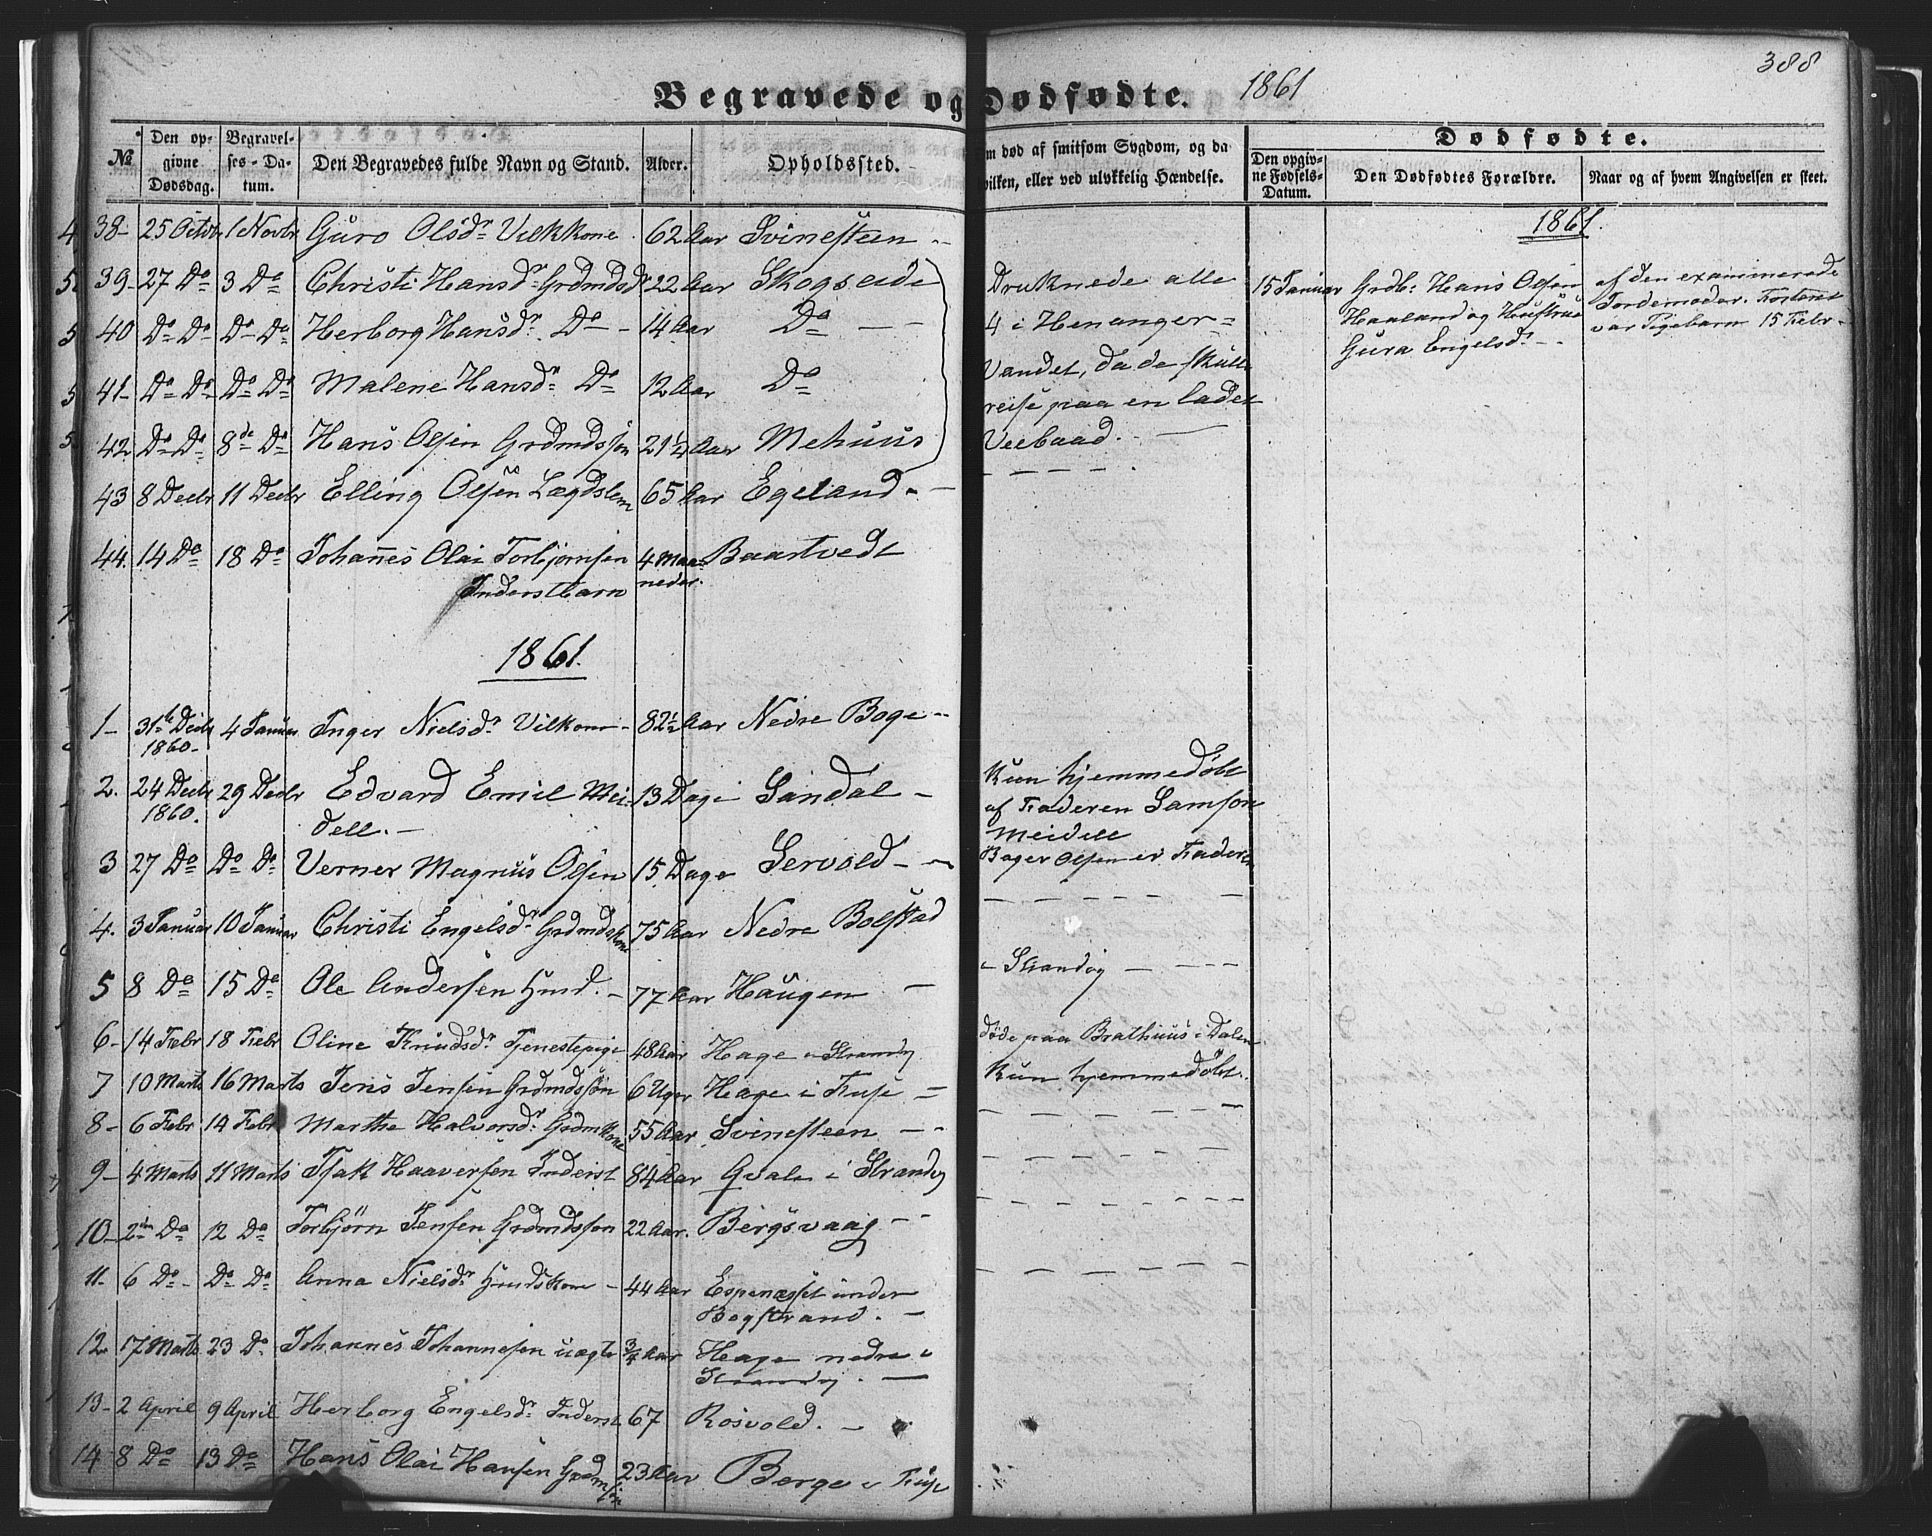 388
Begravede og Dødfødte. 1861
№ Den opgivne Dødsdag. Begravelses-Datum. Den Begravedes fulde Navn og Stand. Alder. Opholdssted.
m død af smitsom Sygdom, og da
vilken, eller ved ulykkelig Hændelse.
Dødfødte.
Den opgivne Fødsels-Datum. Den Dødfødtes Forældre. Naar og af hvem Angivelsen er skeet.
38- 25 Octbr 1 Novbr Guro Olsdr Vilkkone 62 Aar Svinesteen -
39- 27 Do 3 Do Christi Hansdr Grdmdsdr 22 Aar Skogseide
40 Do Do Do Do Herborg Hansdr Do - 14 Aar Do - -
41- Do Do Do Do Malene Hansdr Do 12 Aar Do
42 Do Do 8de Do Hans Olsen Grdmdssøn 21¼ Aar Mehuus
43 8 Decbr 11 Decbr Elling Olsen Lægdslem 65 Aar Egeland -
44. 14 Do 18 Do Johannes Olai Torbjørnsen 4 Maa- Baartvedt
Inderstbarn neder.
1861.
1- 31te Decbr 4 Januar Inger Nielsdr Vilkone - 82½ Aar Nedre Boge -
1860-
2. 24 Decbr 29 Decbr Edvard Emil Mei- 13 Dage Sandal -
1860. dell. -
3 27 Do Do Do Verner Magnus Olsen 15 Dage Servold -
4. 3 Januar 10 Januar Christi Engelsdr Grdmdskone 75 Aar Nedre Bolstad
5 8 Do 15 Do Ole Andersen Hmd. - 77 Aar Haugen -
6- 14 Febr 18 Febr Oline Knudsdr Tjenestepige 48 Aar Hage i Strandv
7 10 Marts 16 Marts Jens Jensen Grdmdssøn 6 Uger Hage i Fuse -
8- 6 Febr 14 Febr Marthe Halvorsdr Grdmkone 55 Aar Svinesteen -
9- 4 Marts 11 Marts Isak Haaversen Inderst 84 Aar Qvale i Strandv
10- 2den Do 12 Do Torbjørn Jensen Grdmdssøn 22 Aar. Bergsvaag -
11- 6 Do - Do Do Anna Nielsdr Hmdskone - 44 Aar Espenæsset under
Bogstrand. -
12 17 Marts 23 Do Johannes Johannesen uægte ¾ Aar Hage nedre i
Strandv. -
13- 2 April 9 April Herborg Engelsdr Inderst 67 Rosvold. -
14 8 Do 13 Do Hans Olai Hansen Grdmsøn 23 Aar Berge i Fuse
Druknede alle
4 i Henanger-
Vandet, da de skulle
reise paa en ladet
Veebaad. -
Kun hjemmedøbt
af Faderen Samson
Meidell
Boger Olsen er Faderen
- Strandv -
døde paa Brathuus i Dalen
Kun hjemmedøbt.
1861.
15 Januar Grdb: Hans Olsen
Haaland og Hustrue
Gura Engelsdr -
af den examinerede
Jordemoder. Fosteret
var Pigebarn 15 Febr -